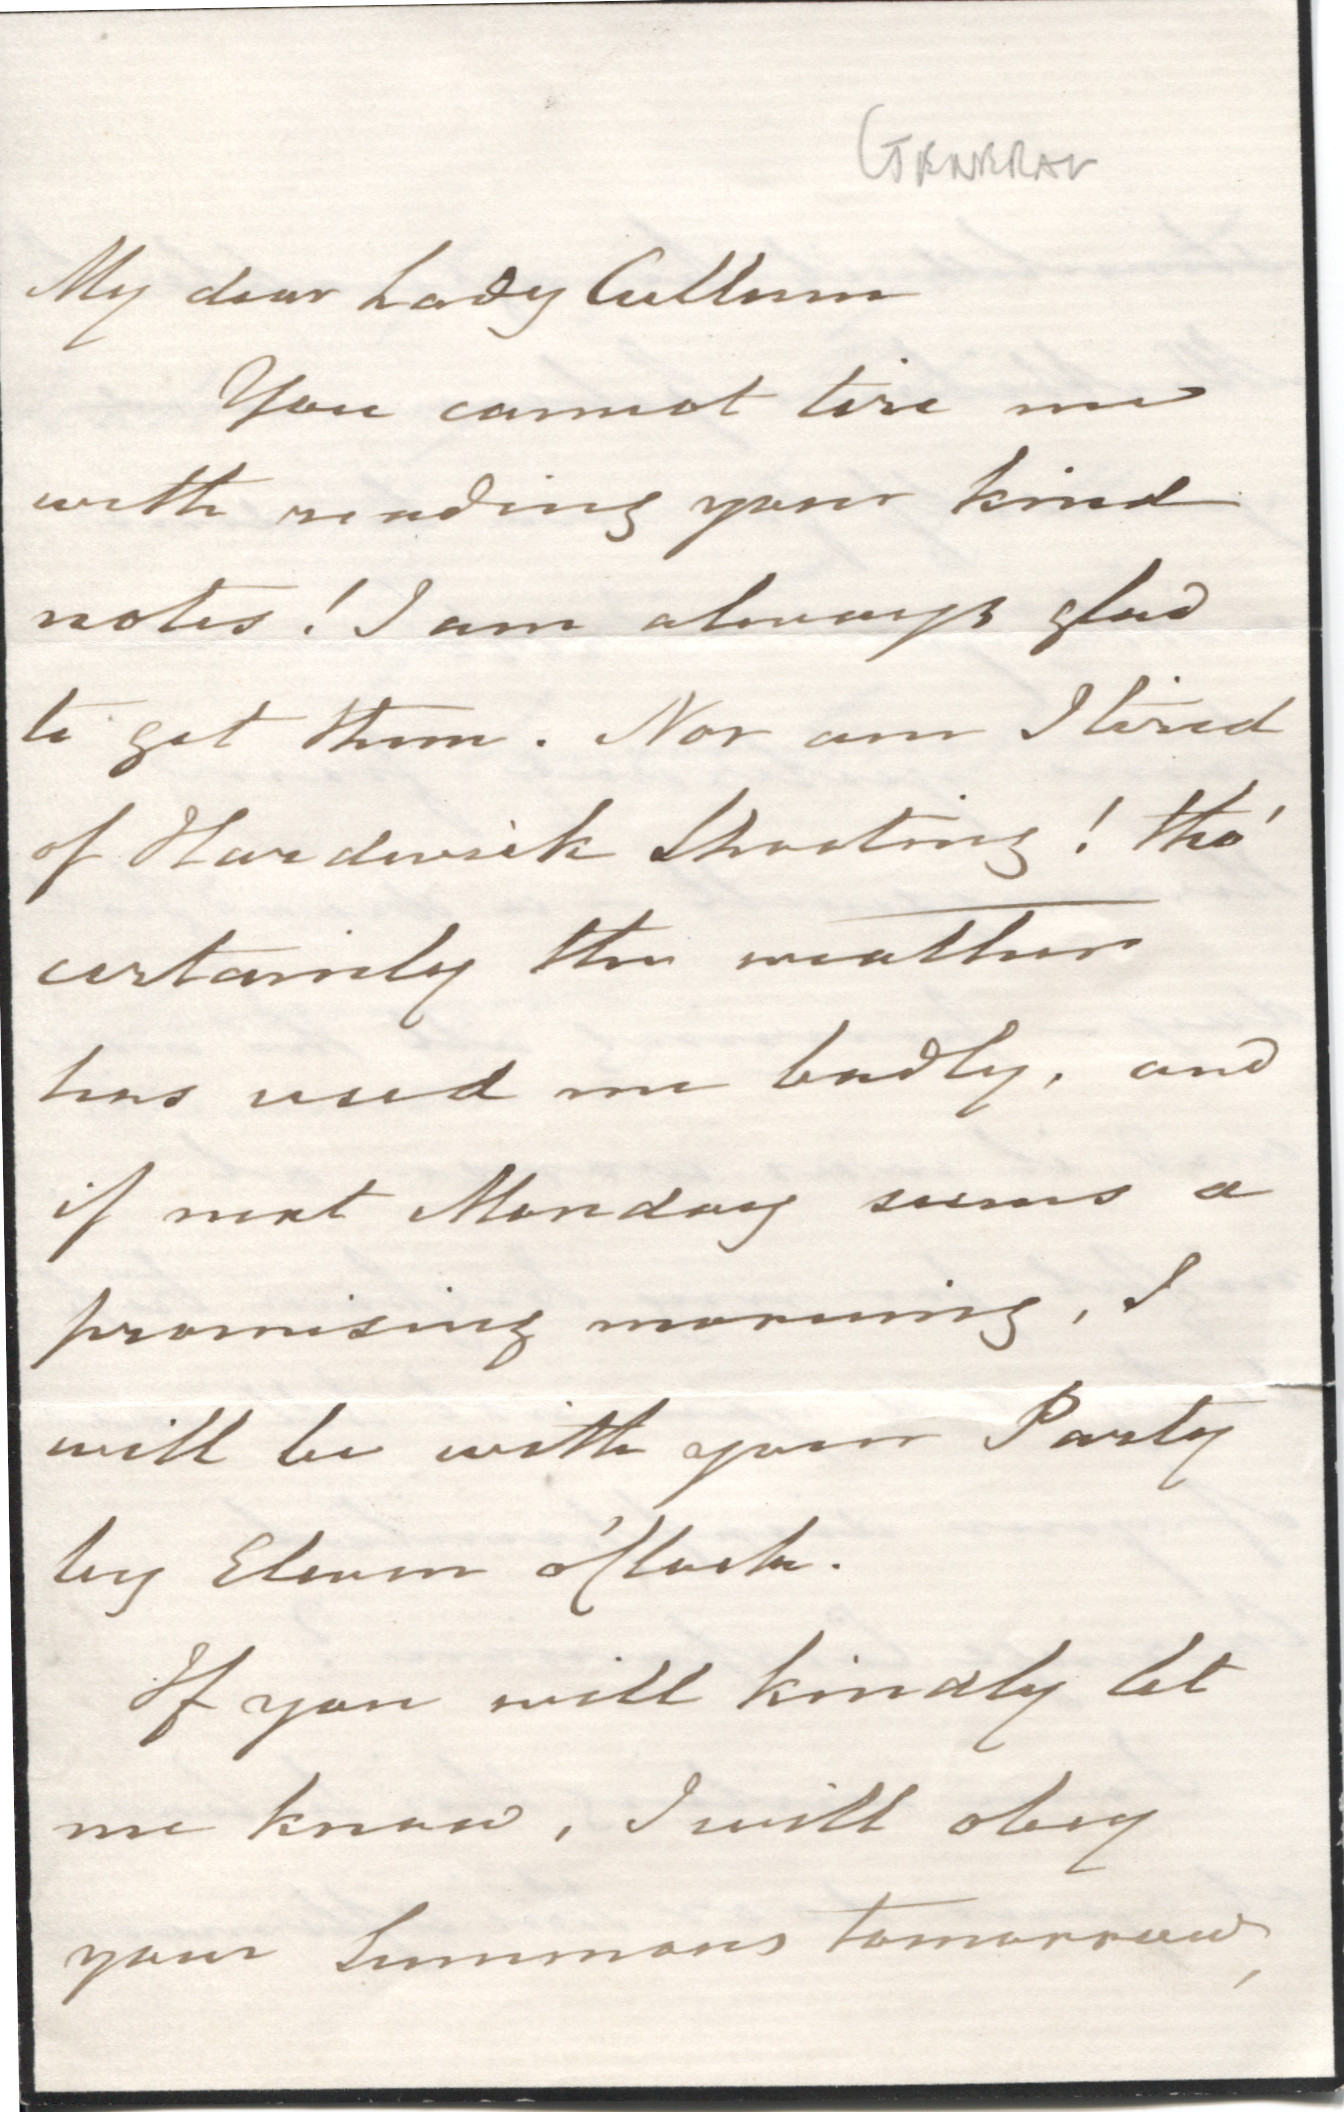 GENERAL
My dear Lady Cullum
You cannot tire me
with reading your kind
notes! I am always glad
to get them. Nor am I tired
of Hardwick Shooting! tho'
certainly the weather
has used me badly, and
if next Monday seems a
promising morning, I
will be with your Party
by Eleven o'Clock.
If you will kindly let
me know, I will obey
your Summons tomorrow,